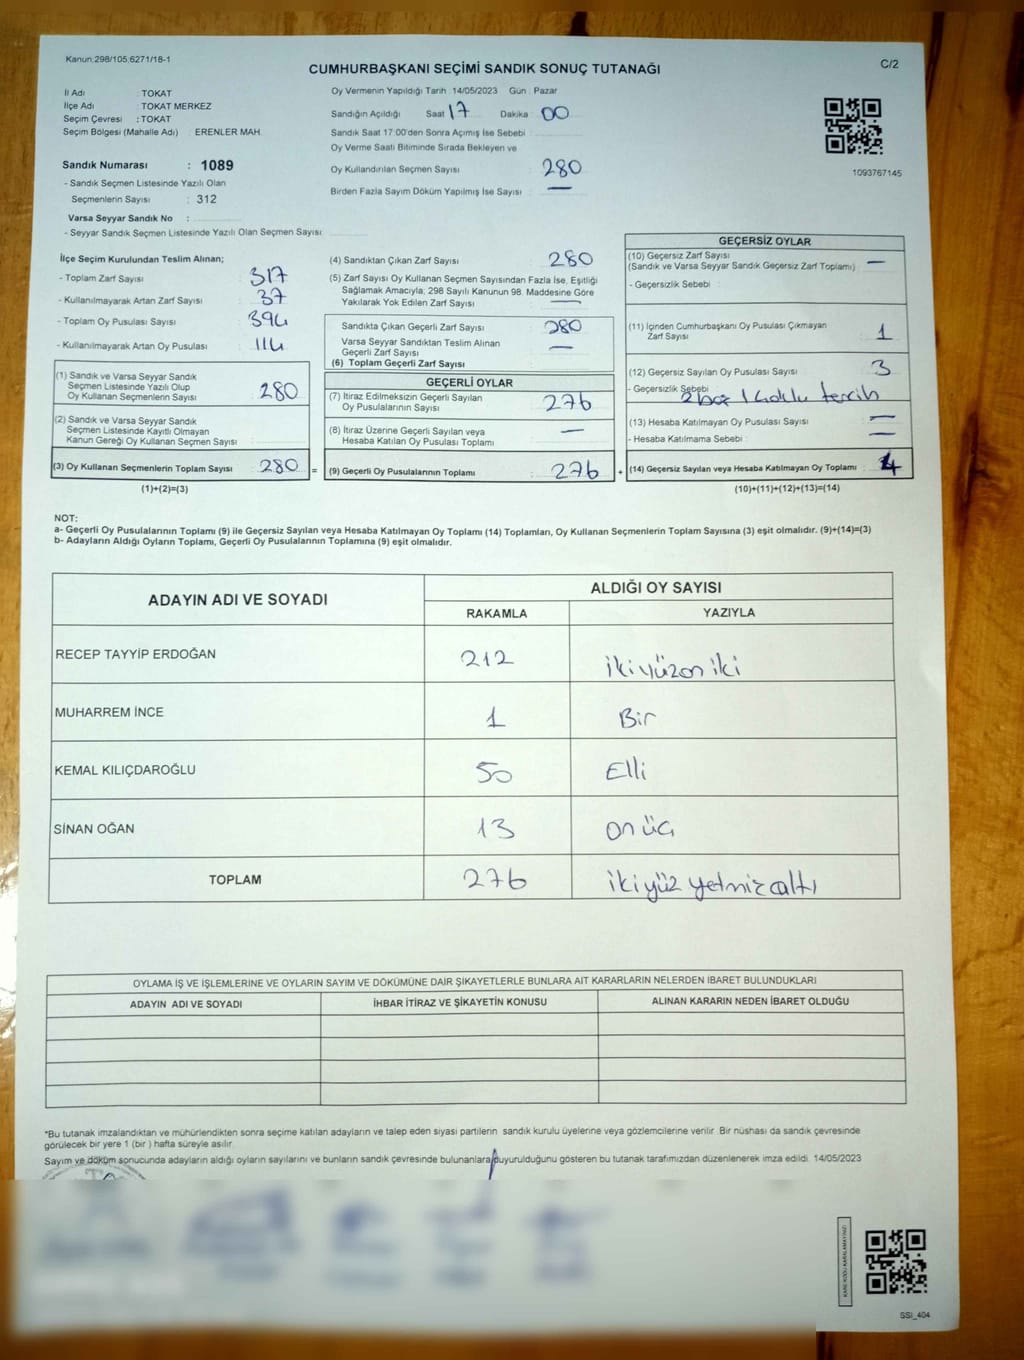 Kanun:298/105;6271/18-1
C/2
CUMHURBAŞKANI SEÇİMİ SANDIK SONUÇ TUTANAĞI
İl Adı : TOKAT
İlçe Adı : TOKAT MERKEZ
Seçim Çevresi : TOKAT
Seçim Bölgesi (Mahalle Adı) : ERENLER MAH.
Sandık Numarası : 1089
- Sandık Seçmen Listesinde Yazılı Olan
Seçmenlerin Sayısı : 312
Varsa Seyyar Sandık No :
- Seyyar Sandık Seçmen Listesinde Yazılı Olan Seçmen Sayısı:
Oy Vermenin Yapıldığı Tarih : 14/05/2023 Gün : Pazar
Sandığın Açıldığı Saat 17 Dakika 00
Sandık Saat 17:00'den Sonra Açımış İse Sebebi :
Oy Verme Saati Bitiminde Sırada Bekleyen ve
Oy Kullandırılan Seçmen Sayısı : 280
Birden Fazla Sayım Döküm Yapılmış İse Sayısı : —
1093767145
İlçe Seçim Kurulundan Teslim Alınan;
- Toplam Zarf Sayısı : 317
- Kullanılmayarak Artan Zarf Sayısı : 37
- Toplam Oy Pusulası Sayısı : 394
- Kullanılmayarak Artan Oy Pusulası : 114
(1) Sandık ve Varsa Seyyar Sandık
Seçmen Listesinde Yazılı Olup
Oy Kullanan Seçmenlerin Sayısı : 280
(2) Sandık ve Varsa Seyyar Sandık
Seçmen Listesinde Kayıtlı Olmayan
Kanun Gereği Oy Kullanan Seçmen Sayısı :
(3) Oy Kullanan Seçmenlerin Toplam Sayısı : 280 =
(1)+(2)=(3)
(4) Sandıktan Çıkan Zarf Sayısı : 280
(5) Zarf Sayısı Oy Kullanan Seçmen Sayısından Fazla İse, Eşitliği
Sağlamak Amacıyla; 298 Sayılı Kanunun 98. Maddesine Göre
Yakılarak Yok Edilen Zarf Sayısı : —
Sandıkta Çıkan Geçerli Zarf Sayısı : 280
Varsa Seyyar Sandıktan Teslim Alınan
Geçerli Zarf Sayısı : —
(6) Toplam Geçerli Zarf Sayısı
GEÇERLİ OYLAR
(7) İtiraz Edilmeksizin Geçerli Sayılan
Oy Pusulalarının Sayısı : 276
(8) İtiraz Üzerine Geçerli Sayılan veya
Hesaba Katılan Oy Pusulası Toplamı : —
(9) Geçerli Oy Pusulalarının Toplamı : 276 +
GEÇERSİZ OYLAR
(10) Geçersiz Zarf Sayısı
(Sandık ve Varsa Seyyar Sandık Geçersiz Zarf Toplamı) : —
- Geçersizlik Sebebi :
(11) İçinden Cumhurbaşkanı Oy Pusulası Çıkmayan
Zarf Sayısı : 1
(12) Geçersiz Sayılan Oy Pusulası Sayısı : 3
- Geçersizlik Sebebi
2 boş 1 çoklu tercih
(13) Hesaba Katılmayan Oy Pusulası Sayısı : —
- Hesaba Katılmama Sebebi : —
(14) Geçersiz Sayılan veya Hesaba Katılmayan Oy Toplamı : 4
(10)+(11)+(12)+(13)=(14)
NOT:
a- Geçerli Oy Pusulalarının Toplamı (9) ile Geçersiz Sayılan veya Hesaba Katılmayan Oy Toplamı (14) Toplamları, Oy Kullanan Seçmenlerin Toplam Sayısına (3) eşit olmalıdır. (9)+(14)=(3)
b- Adayların Aldığı Oyların Toplamı, Geçerli Oy Pusulalarının Toplamına (9) eşit olmalıdır.
ADAYIN ADI VE SOYADI
ALDIĞI OY SAYISI
RAKAMLA YAZIYLA
RECEP TAYYİP ERDOĞAN 212 ikiyüzon iki
MUHARREM İNCE 1 Bir
KEMAL KILIÇDAROĞLU 50 Elli
SİNAN OĞAN 13 on üç
TOPLAM 276 ikiyüz yetmiş altı
OYLAMA İŞ VE İŞLEMLERİNE VE OYLARIN SAYIM VE DÖKÜMÜNE DAİR ŞİKAYETLERLE BUNLARA AİT KARARLARIN NELERDEN İBARET BULUNDUKLARI
ADAYIN ADI VE SOYADI İHBAR İTİRAZ VE ŞİKAYETİN KONUSU ALINAN KARARIN NEDEN İBARET OLDUĞU
*Bu tutanak imzalandıktan ve mühürlendikten sonra seçime katılan adayların ve talep eden siyasi partilerin sandık kurulu üyelerine veya gözlemcilerine verilir. Bir nüshası da sandık çevresinde
görülecek bir yere 1 (bir ) hafta süreyle asılır.
Sayım ve döküm sonucunda adayların aldığı oyların sayılarını ve bunların sandık çevresinde bulunanlara duyurulduğunu gösteren bu tutanak tarafımızdan düzenlenerek imza edildi. 14/05/2023
KARE KODU KARALAMAYINIZ!
SSİ_404